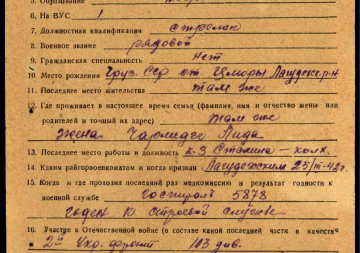 5. Образование
6. На ВУС 1
7. Должностная квалификация стрелок
8. Военное звание рядовой
9. Гражданская специальность нет
10. Место рождения Груз. ССР ст. Цморы Лагодехс. р-н
11. Последнее место жительства там же
12. Где проживает в настоящее время семья (фамилия, имя и отчество жены или
родителей и точный их адрес) там же
жена Лида
13. Последнее место работы и должность к-з Сталина — колх.
14. Каким райгорвоенкоматом и когда призван Лагодехским 25/III-42 г.
15. Когда и где проходил последний раз медкомиссию и результат годности к
военной службе госпиталь 5878
годен к строевой службе
16. Участие в Отечественной войне (в составе какой последней части и в качестве
2й Укр. фронт 103 див.